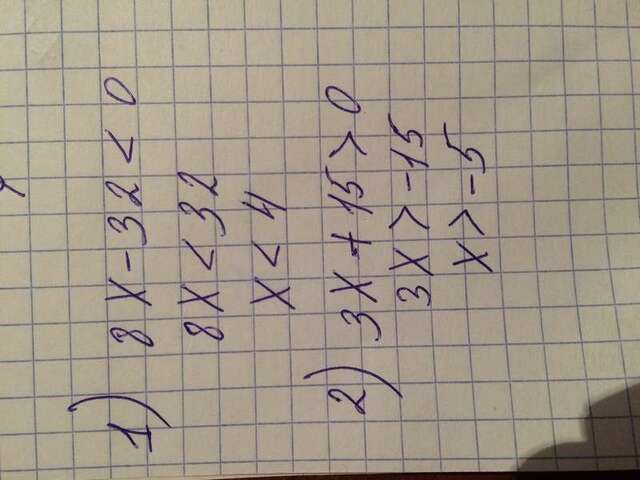 1) 8x - 32 < 0
8x < 32
x < 4
2) 3x + 15 > 0
3x > -15
x > -5